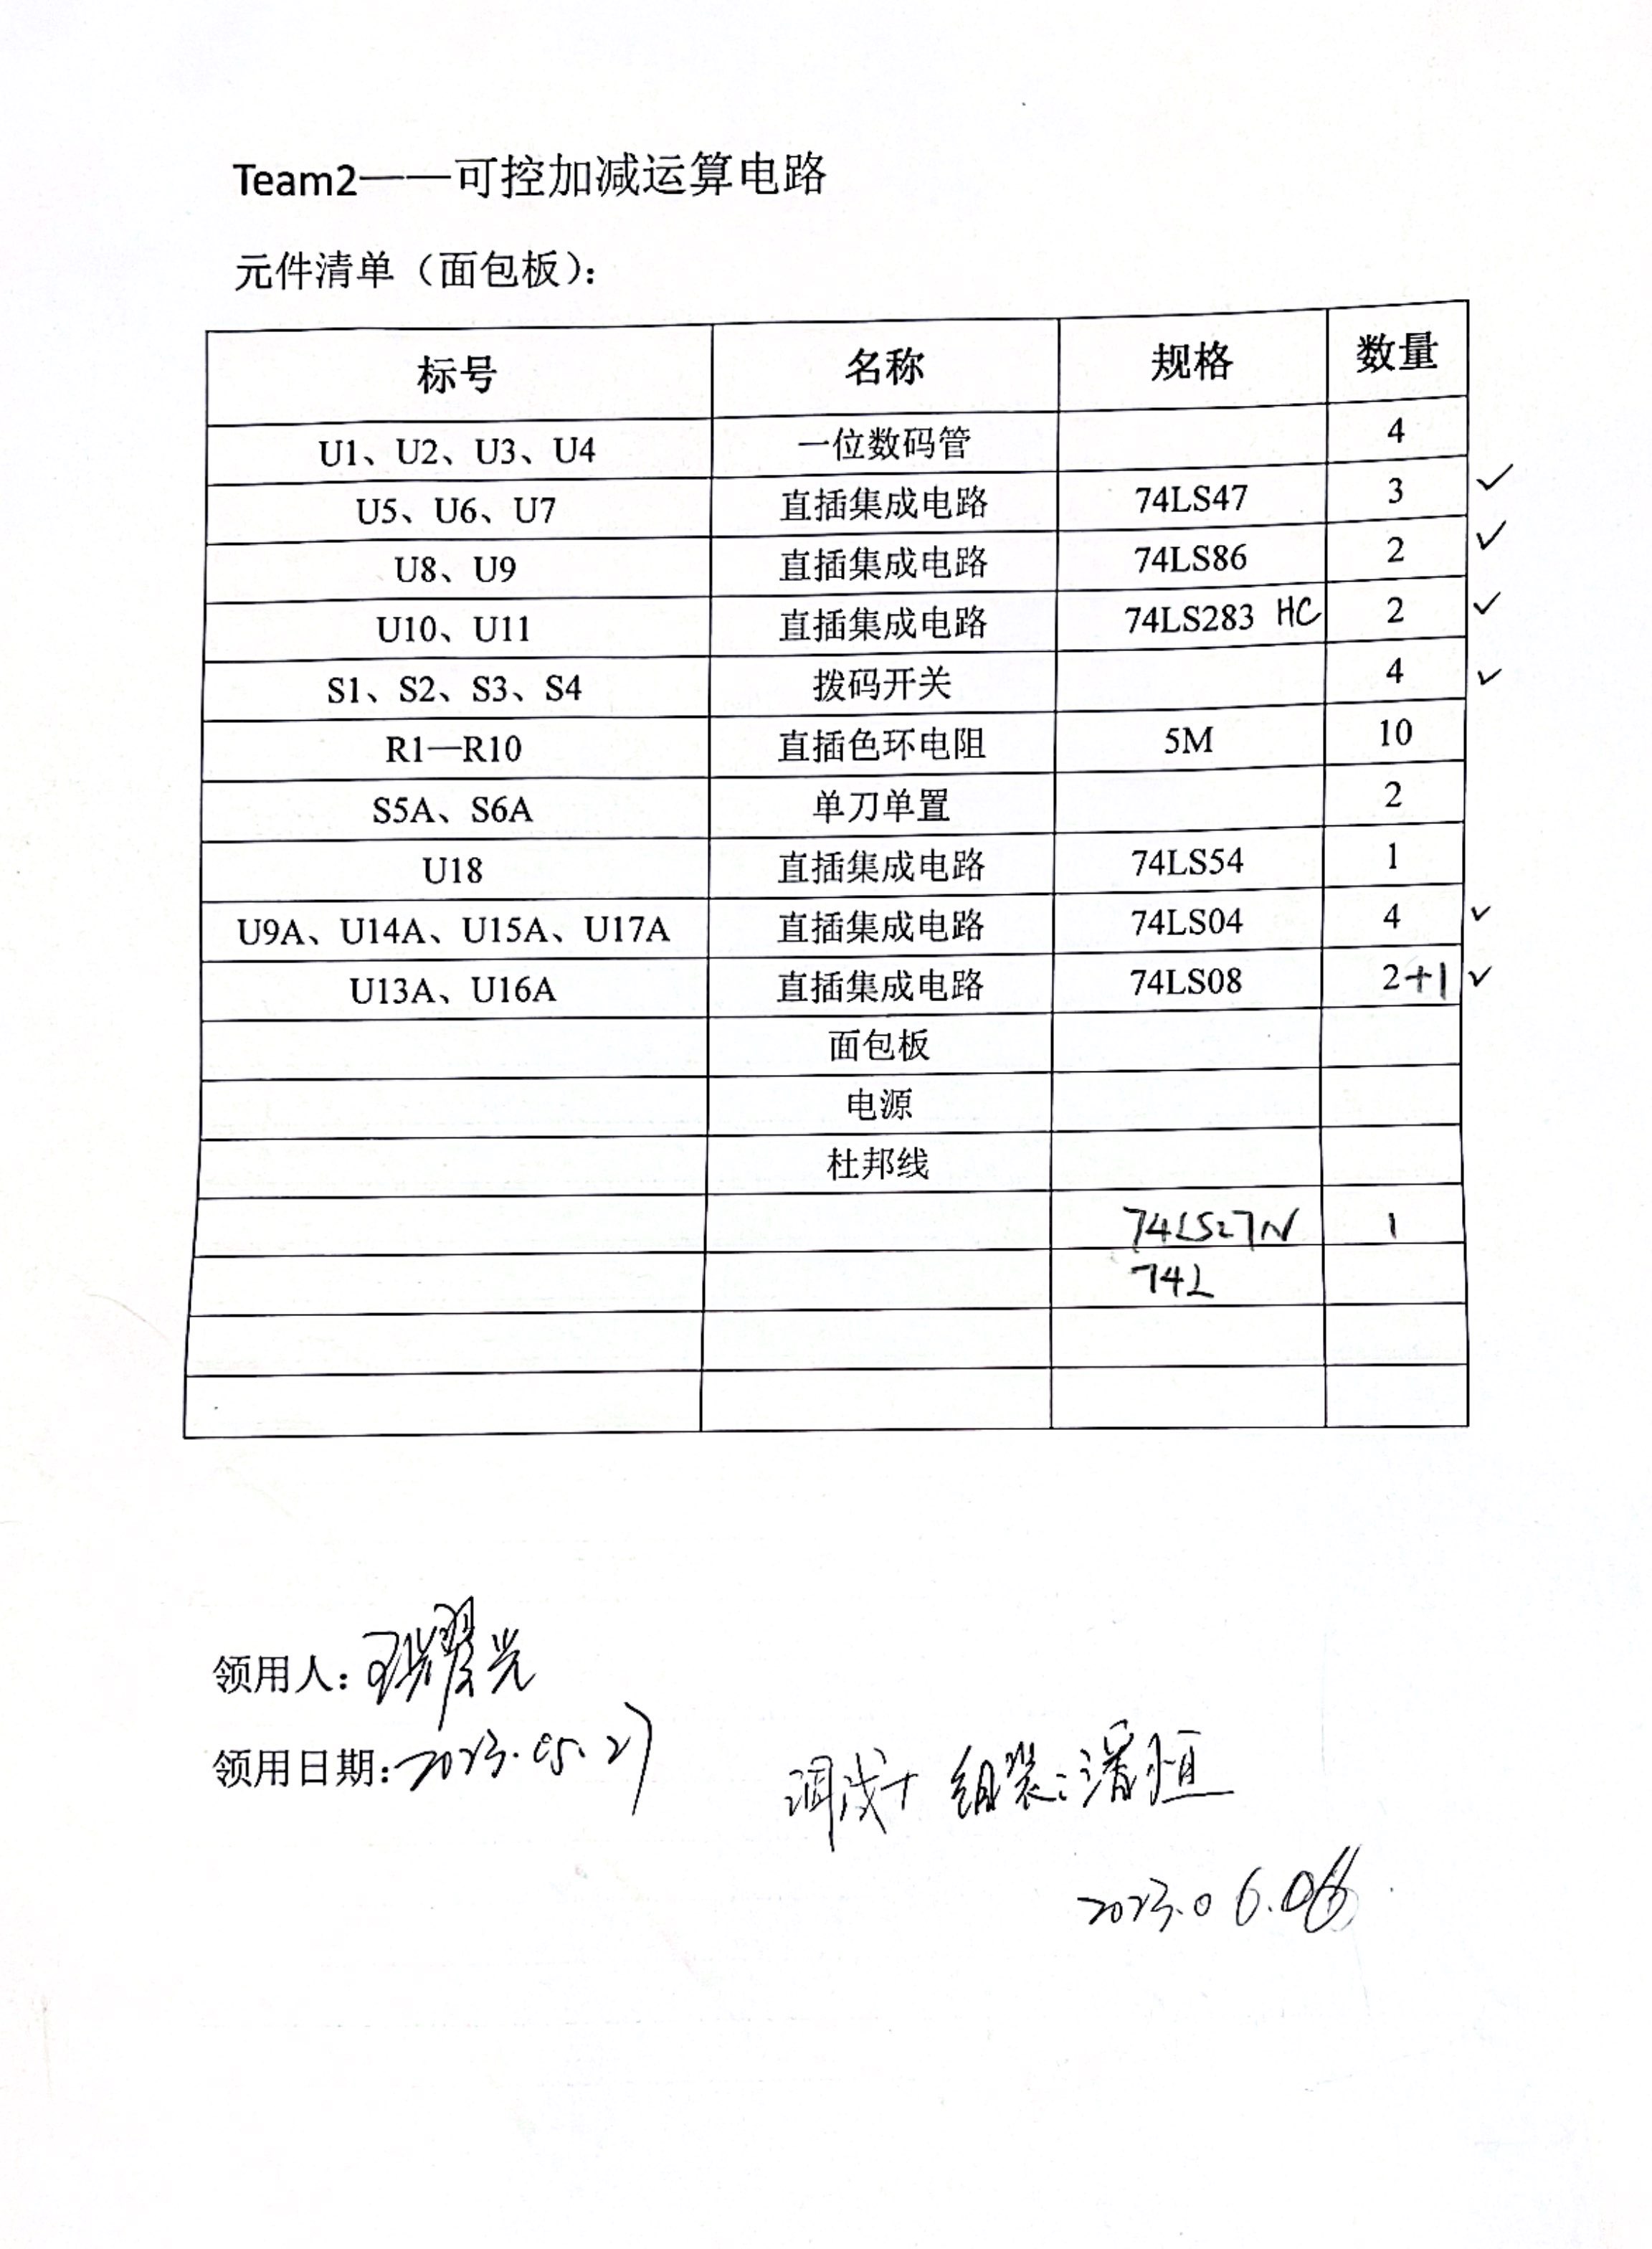 Team2——可控加减运算电路
元件清单（面包板）：
标号 名称 规格 数量
U1、U2、U3、U4 一位数码管 4
U5、U6、U7 直插集成电路 74LS47 3 ✓
U8、U9 直插集成电路 74LS86 2 ✓
U10、U11 直插集成电路 74LS283 HC 2 ✓
S1、S2、S3、S4 拨码开关 4 ✓
R1—R10 直插色环电阻 5M 10
S5A、S6A 单刀单置 2
U18 直插集成电路 74LS54 1
U9A、U14A、U15A、U17A 直插集成电路 74LS04 4 ✓
U13A、U16A 直插集成电路 74LS08 2+1 ✓
面包板
电源
杜邦线
74LS27N 1
74L
领用人：耀光
领用日期：2023.05.27
调试+组装：潘恒
2023.06.